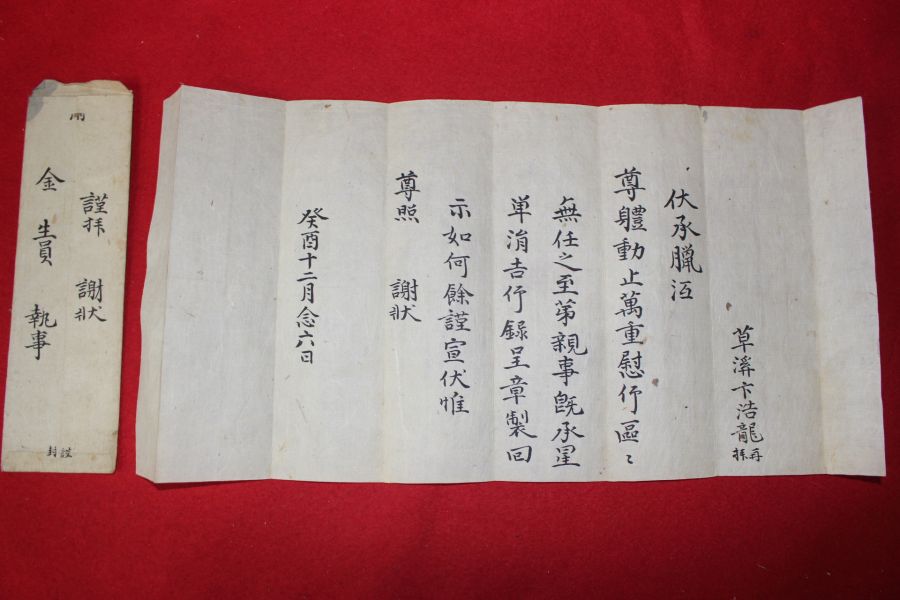 草溪卞浩龍 再拜
伏承臘沍
尊體動止萬重慰仰區〻
無任之至第親事旣承星
單涓吉仰錄呈章製回
示如何餘謹宣伏惟
尊照 謝狀
癸酉十二月念六日
謹拜 謝狀
金生員 執事
謹封